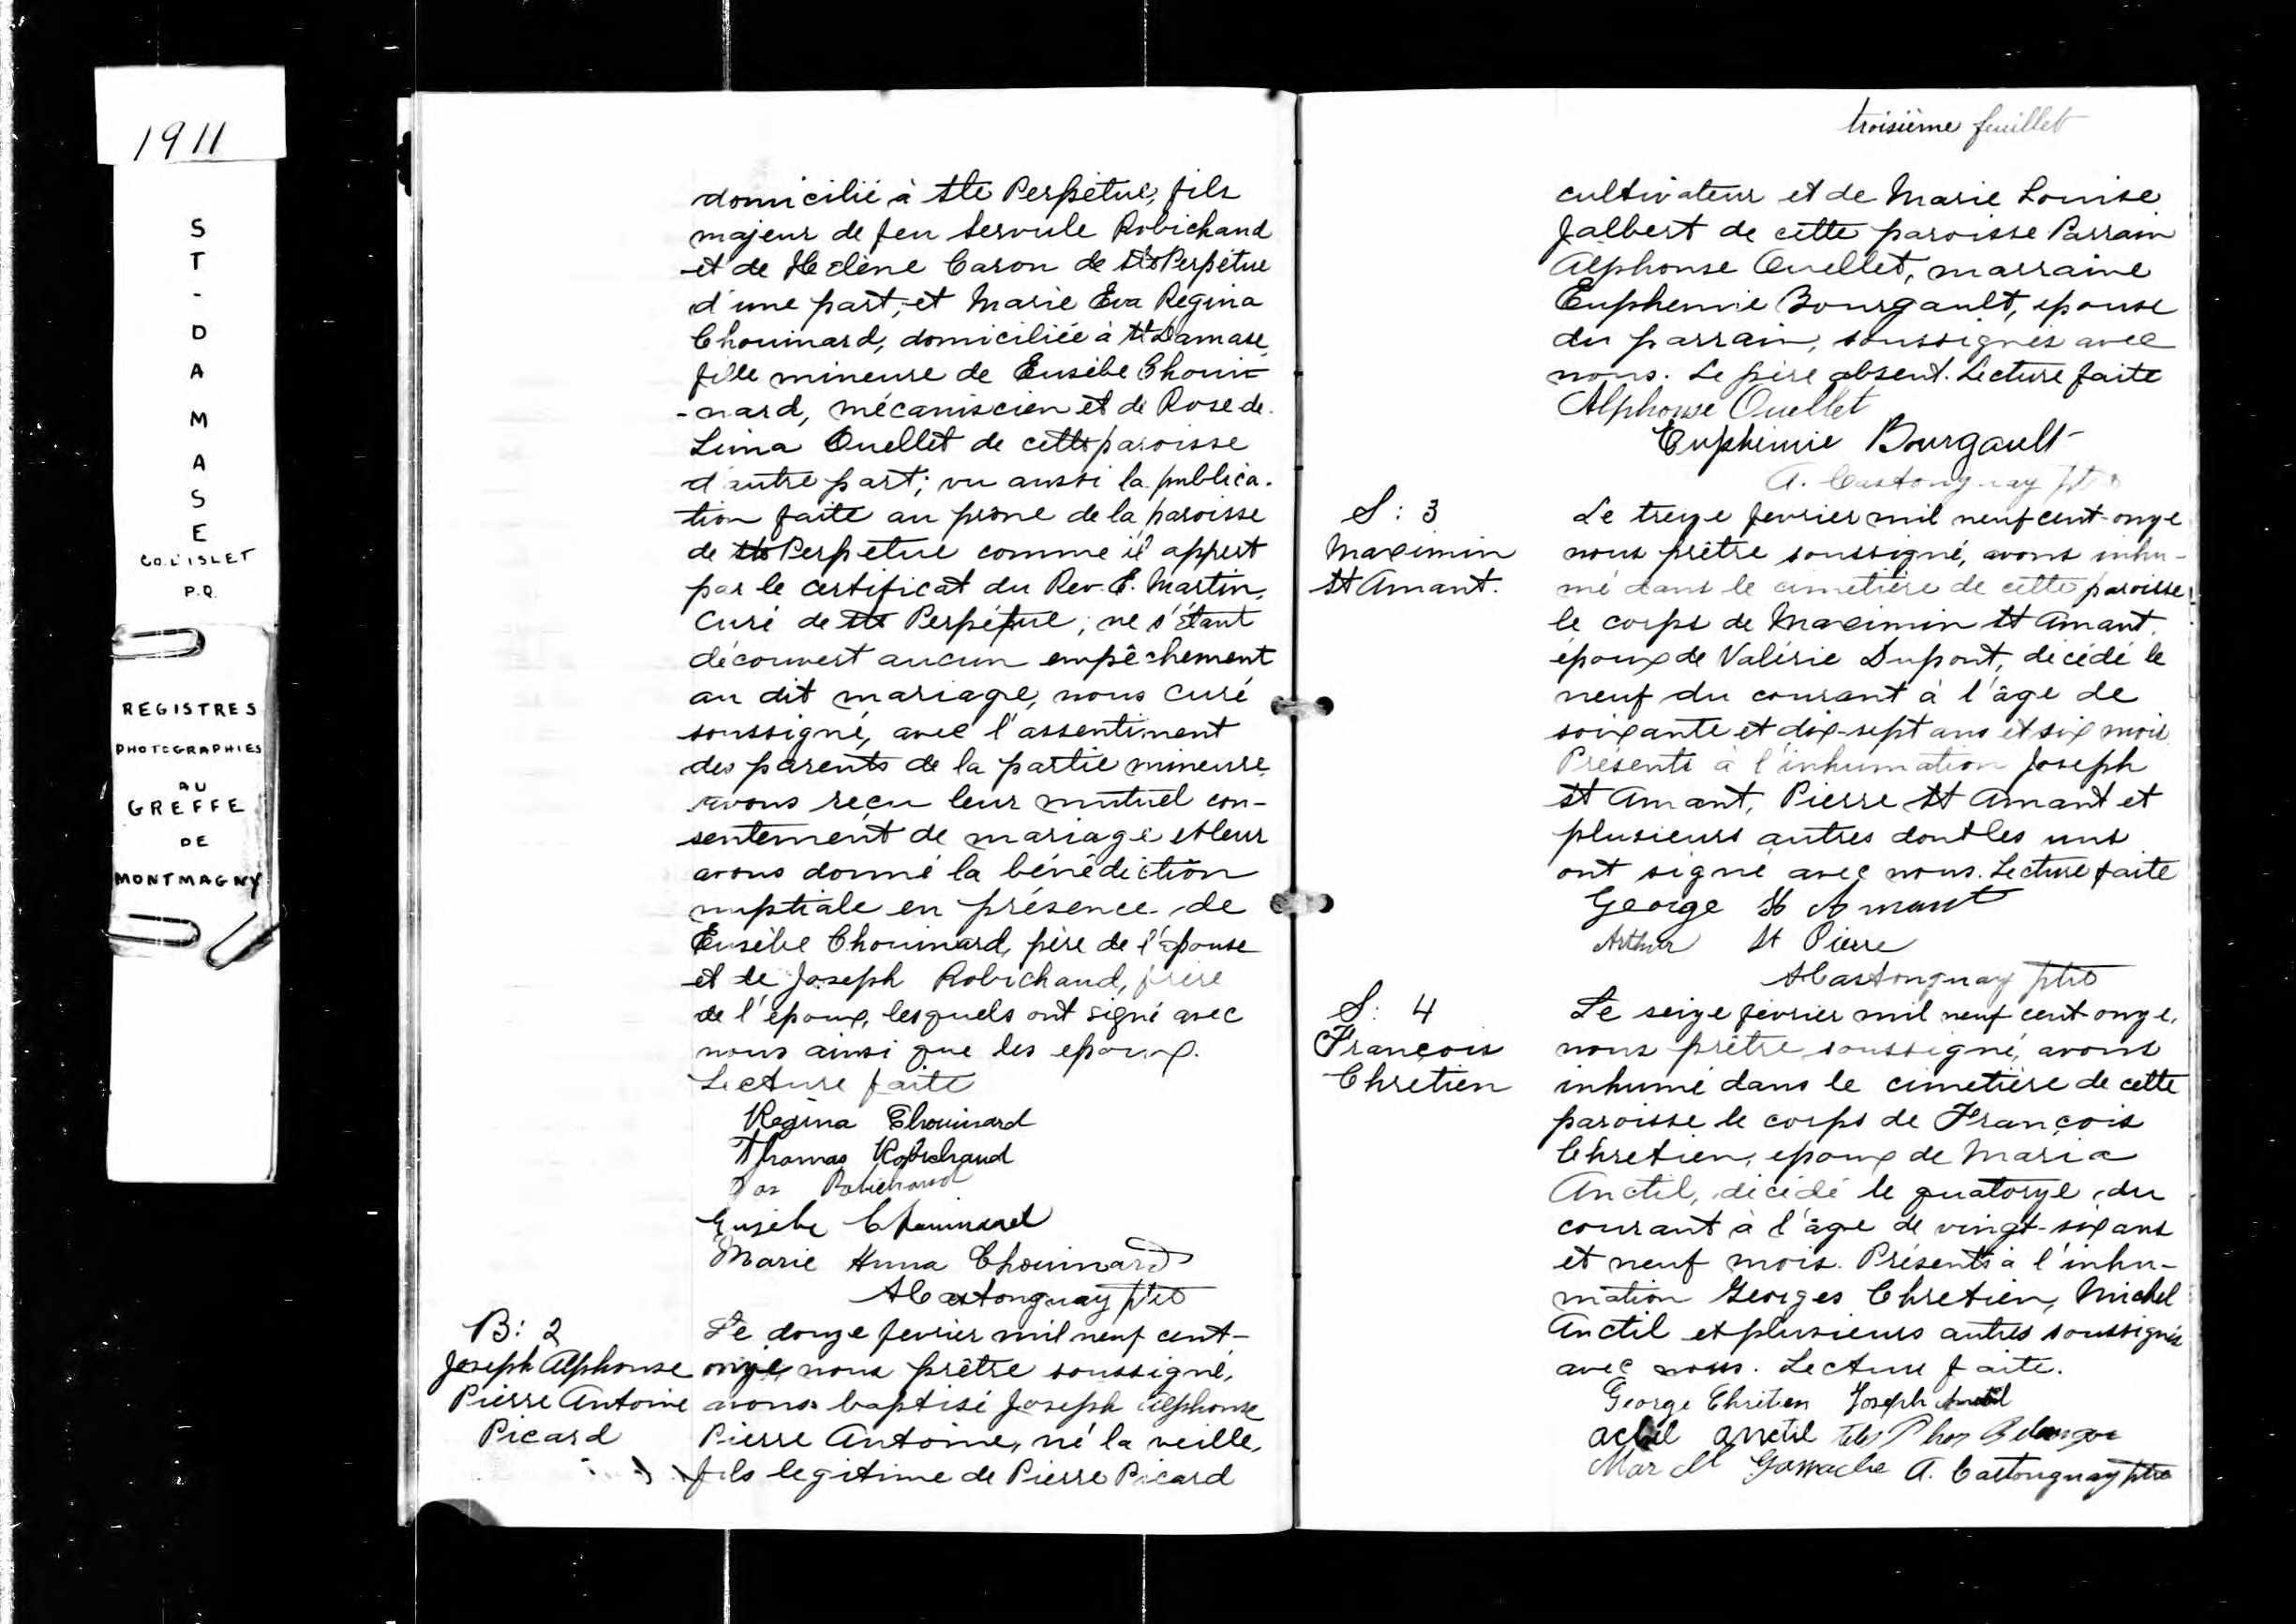 1911
S
T
-
D
A
M
A
S
E
CO. L'ISLET
P.Q.
REGISTRES
PHOTOGRAPHIES
AU
GREFFE
DE
MONTMAGNY
domicilié à Ste Perpétue, fils
majeur de feu Servule Robichaud
et de Helène Caron de Ste Perpétue
d'une part, et Marie Eva Regina
Chouinard, domiciliée à St Damase,
fille mineure de Eusèbe Choui-
-nard, mécaniscien et de Rose de
Lima Ouellet de cette paroisse
d'autre part; vu aussi la publica-
tion faite au prône de la paroisse
de Ste Perpétue comme il appert
par le certificat du Rev. E. Martin,
Curé de Ste Perpétue, ne s'étant
découvert aucun empêchement
au dit mariage, nous curé
soussigné, avec l'assentiment
des parents de la partie mineure,
avons reçu leur mutuel con-
sentement de mariage et leur
avons donné la bénédiction
nuptiale en présence de
Eusèbe Chouinard, père de l'épouse
et de Joseph Robichaud, frère
de l'époux, lesquels ont signé avec
nous ainsi que les epoux.
Lecture faite
Regina Chouinard
Thomas Robichaud
Jos Robichaud
Eusèbe Chouinard
Marie Anna Chouinard
A Castonguay ptre
B: 2
Joseph Alphonse
Pierre Antoine
Picard
Le douze fevrier mil neuf cent-
onze, nous prêtre soussigné,
avons baptisé Joseph Alphonse
Pierre Antoine, né la veille,
fils legitime de Pierre Picard
troisième feuillet
cultivateur et de Marie Louise
Jalbert de cette paroisse Parrain
Alphonse Ouellet, marraine
Euphemie Bourgault, epouse
du parrain, soussignés avec
nous. Le père absent. Lecture faite
Alphonse Ouellet
Euphémie Bourgault
A. Castonguay ptre
S: 3
Maximin
St Amant.
Le treize fevrier mil neuf cent-onze
nous prêtre soussigné, avons inhu-
mé dans le cimetière de cette paroisse
le corps de Maximin St Amant,
époux de Valérie Dupont, décédé le
neuf du courant à l'âge de
soixante et dix-sept ans et six mois.
Présents à l'inhumation Joseph
St Amant, Pierre St Amant et
plusieurs autres dont les uns
ont signé avec nous. Lecture faite
George St Amant
Arthur St Pierre
A Castonguay ptre
S: 4
François
Chretien
Le seize février mil neuf cent onze,
nous prêtre soussigné, avons
inhumé dans le cimetière de cette
paroisse le corps de François
Chretien, epoux de Maria
Anctil, décédé le quatorze du
courant à l'âge de vingt-six ans
et neuf mois. Présents à l'inhu-
mation Georges Chretien, Michel
Anctil et plusieurs autres soussignés
avec nous. Lecture faite.
George Chrétien Joseph Anctil
anctil Belanger
Gamache A. Castonguay ptre